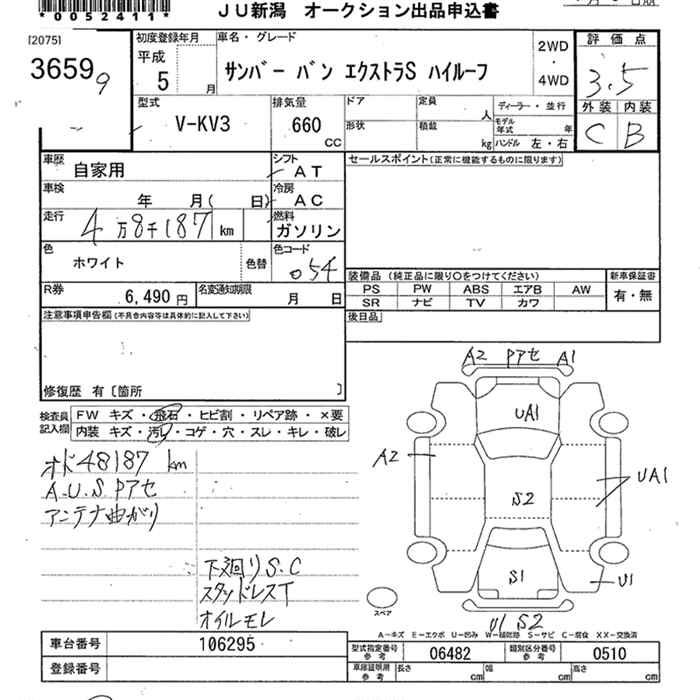 *00524 11*
JU新潟 オークション出品申込書
[2075]
3659 9
初度登録年月
平成
5 月
車名・グレード
サンバー バン エクストラS ハイルーフ
2WD
・
4WD
評価点
3.5
外装 内装
C B
型式
V-KV3
排気量
660
CC
ドア
定員
人
形状
積載
kg
ディーラー・並行
モデル年式 年
ハンドル 左・右
車歴
自家用
シフト
AT
車検
年 月( 日)
冷房
AC
走行
4万8千187 km
燃料
ガソリン
色
ホワイト
色替
色コード
054
R券
6,490 円
名変通知期限
月 日
セールスポイント(正常に機能するものに限ります)
装備品 (純正品に限り○をつけてください)
PS PW ABS エアB AW
SR ナビ TV カワ
新車保証書
有・無
後日品
注意事項申告欄(不具合内容等は具体的に記入して下さい)
修復歴 有〔箇所 〕
検査員記入欄
FW キズ・飛石・ヒビ割・リペア跡・×要
内装 キズ・汚れ・コゲ・穴・スレ・キレ・破レ
オド48187 km
A.U.S Pアセ
アンテナ曲がり
下廻りS.C
スタッドレスT
オイルモレ
A2 Pアセ A1
UA1
A2
UA1
S2
S1
U1
U1 S2
スペア
A-キズ E-エクボ U-凹み W-補修跡 S-サビ C-腐食 XX-交換済
車台番号 106295
登録番号
型式指定番号 参考 06482
類別区分番号 参考 0510
車庫証明用 参考 長さ cm 幅 cm 高さ cm